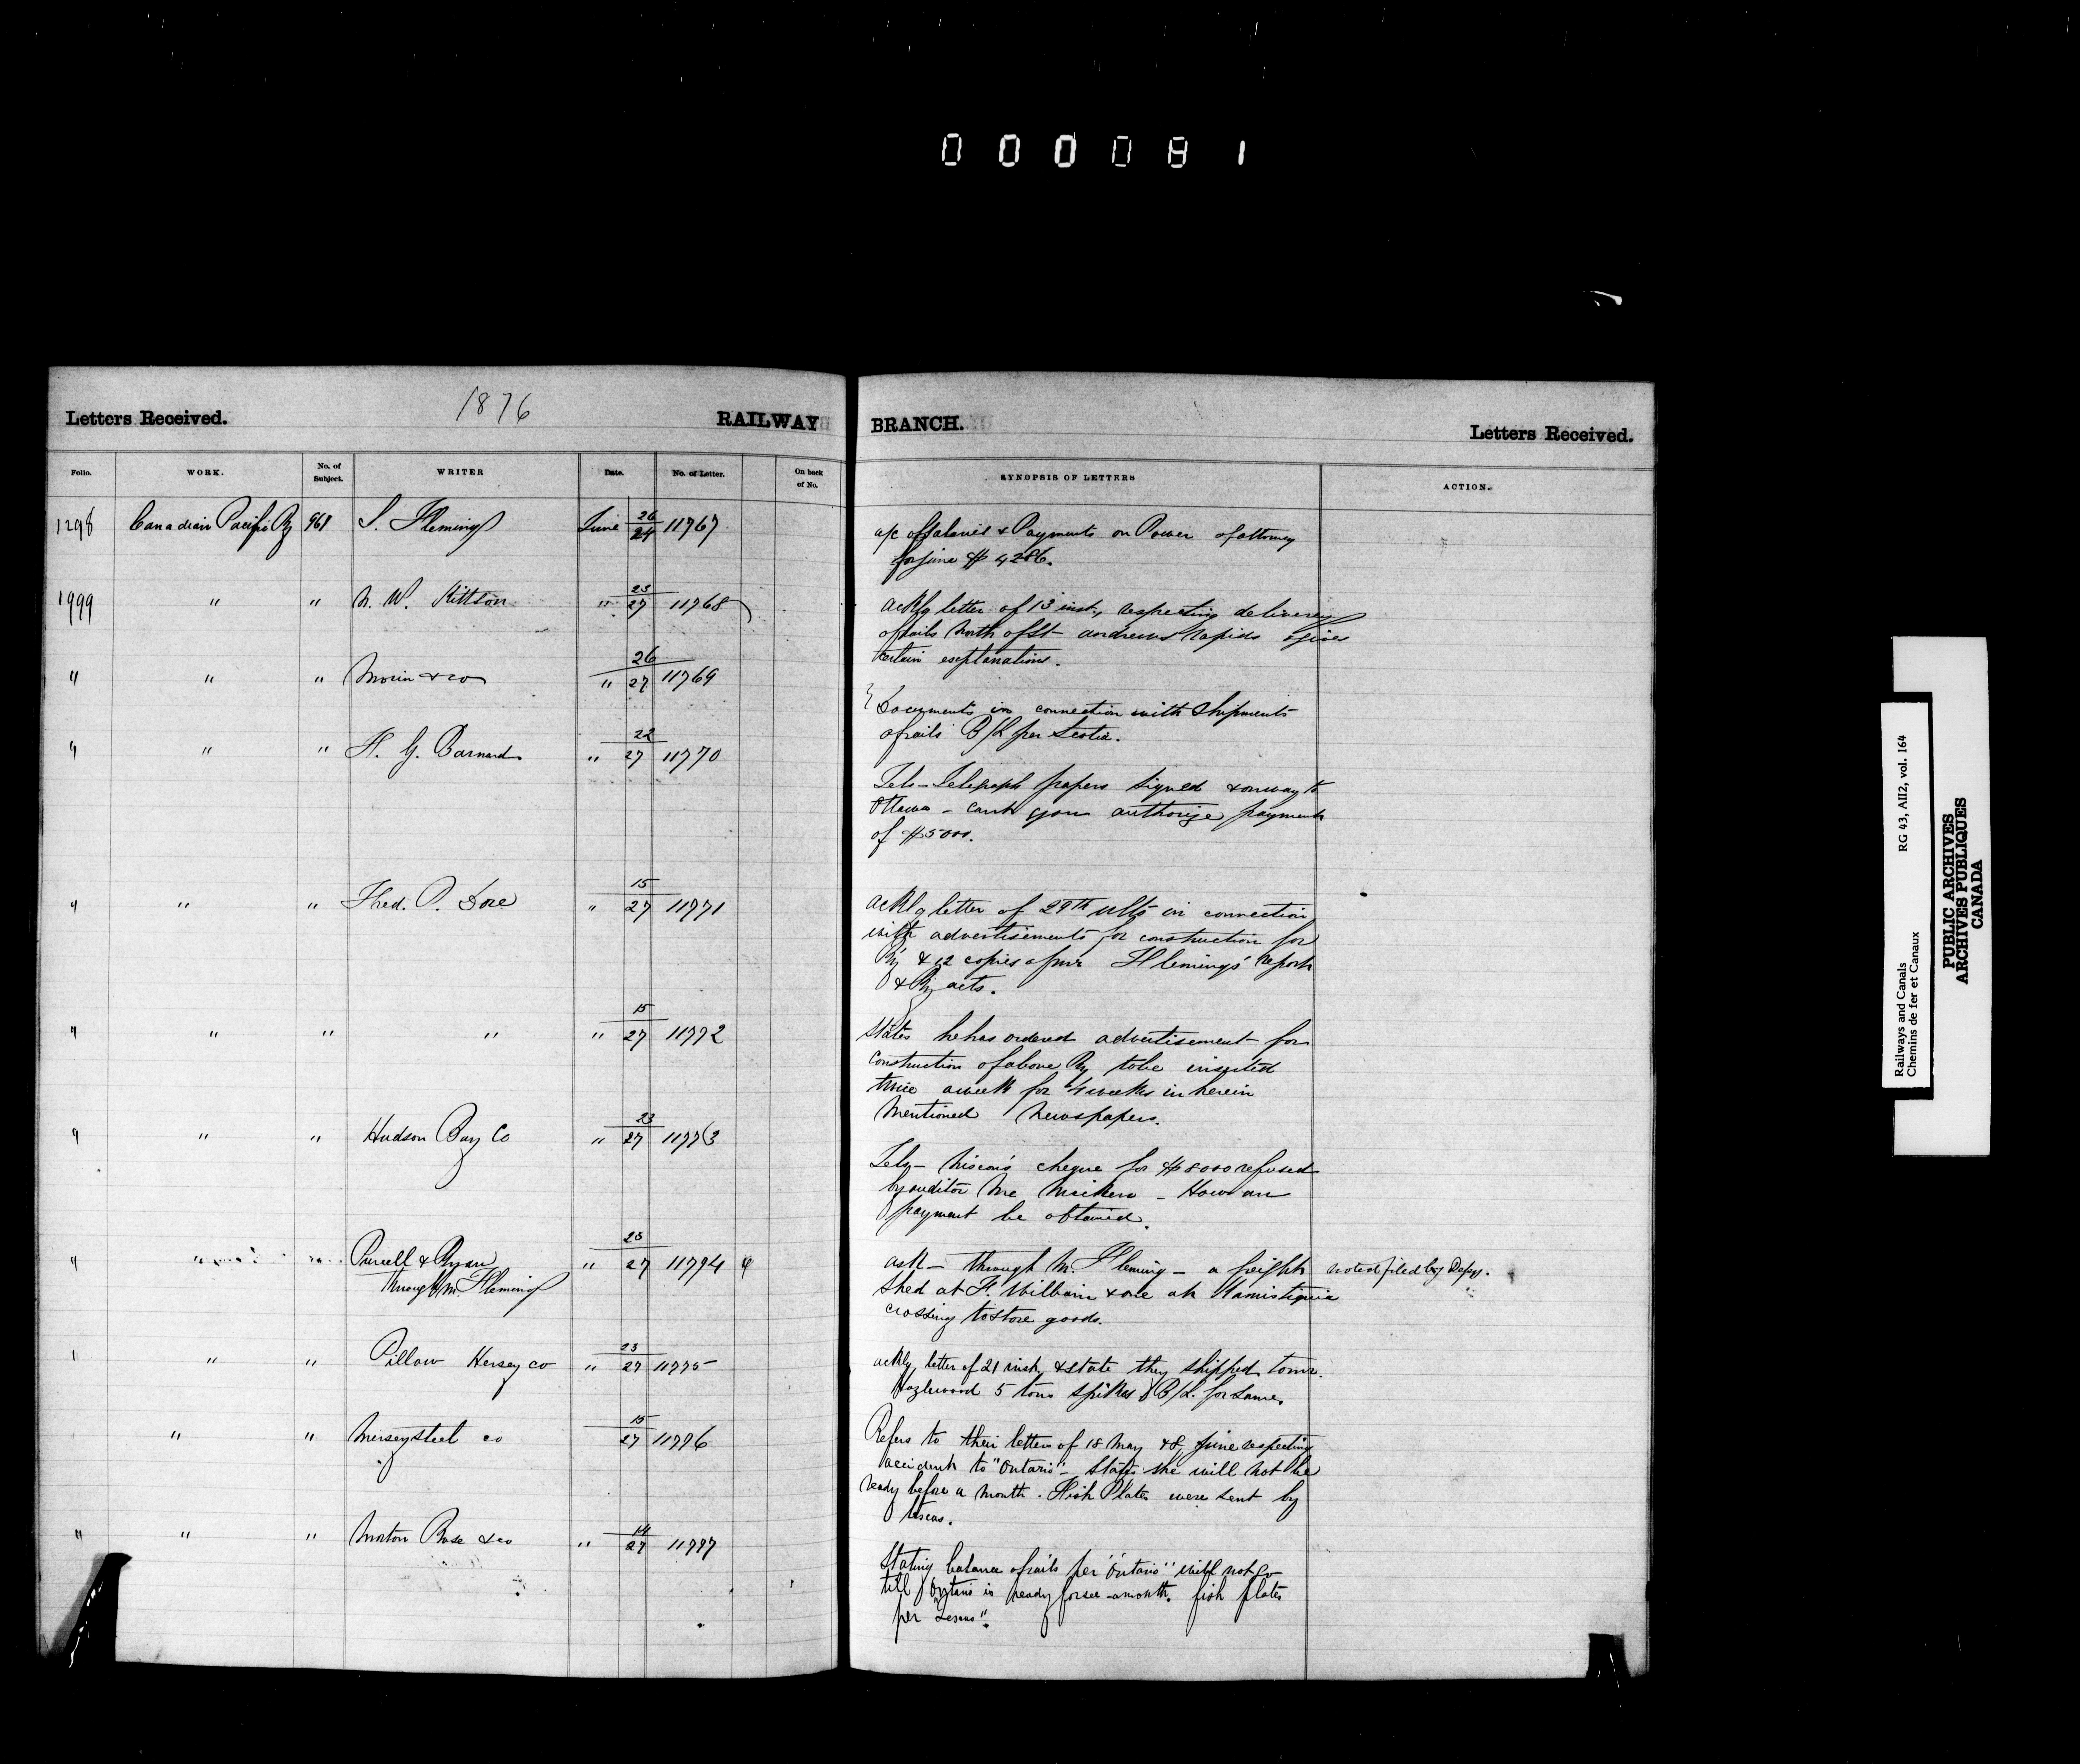 0 0 0 0 8 1
1876
Letters Received. RAILWAY BRANCH. Letters Received.
Folio. WORK. No. of Subject. WRITER Date. No. of Letter. On back of No. SYNOPSIS OF LETTERS ACTION.
1298 Canadian Pacific Ry 961 S. Fleming June 26/24 11767
a/c of Salaries & Payments on Power of attorney
for June $ 4286.
1999 " " N. W. Kittson " 23/27 11768
Ackg letter of 13 inst, respecting delivery
of rails North of St andrews rapids & gives
certain explanations.
" " " Morin & co " 26/27 11769
Documents in connection with Shipments
of rails B/L per Scotia.
" " " F. G. Barnard " 22/27 11770
Tels - Telegraph papers signed & on way to
Ottawa - cant you authorize payment
of $5000.
" " " Fred. P. Dore " 15/27 11771
Ackg letter of 29th ulto in connection
with advertisements for construction for
Ry & 12 copies of mr Flemings' report
& Ry acts.
" " " " " 15/27 11772
States he has ordered advertisement for
construction of above Ry to be inserted
twice a week for 4 weeks in herein
mentioned newspapers.
" " " Hudson Bay Co " 23/27 11773
Telg - Nixon's cheque for $8000 refused
by auditor - How can
payment be obtained.
" " " Purcell & Ryan " 23/27 11774 "
through M. Fleming
ask - through M. Fleming - a freight noted filed by Depy.
shed at F. William & one at Kamistiquia
crossing to store goods.
" " " Pillow Hersey co " 23/27 11775
ackg letter of 21 inst, & state they shipped to mr.
Hazlewood 5 tons spikes B/L. for same.
" " " Mersey steel co 15/27 11776
Refers to their letters of 18 May & 8 June respecting
accident to "Ontario" - States she will not be
ready before a month. Fish Plates were sent by
" " " Morton Rose & co " 14/27 11777
Stating balance of rails per "Ontario" will not go
till Ontario is ready for sea - a month. fish plates
per
Railways and Canals RG 43, AII2, vol. 164
Chemins de fer et Canaux
PUBLIC ARCHIVES
ARCHIVES PUBLIQUES
CANADA